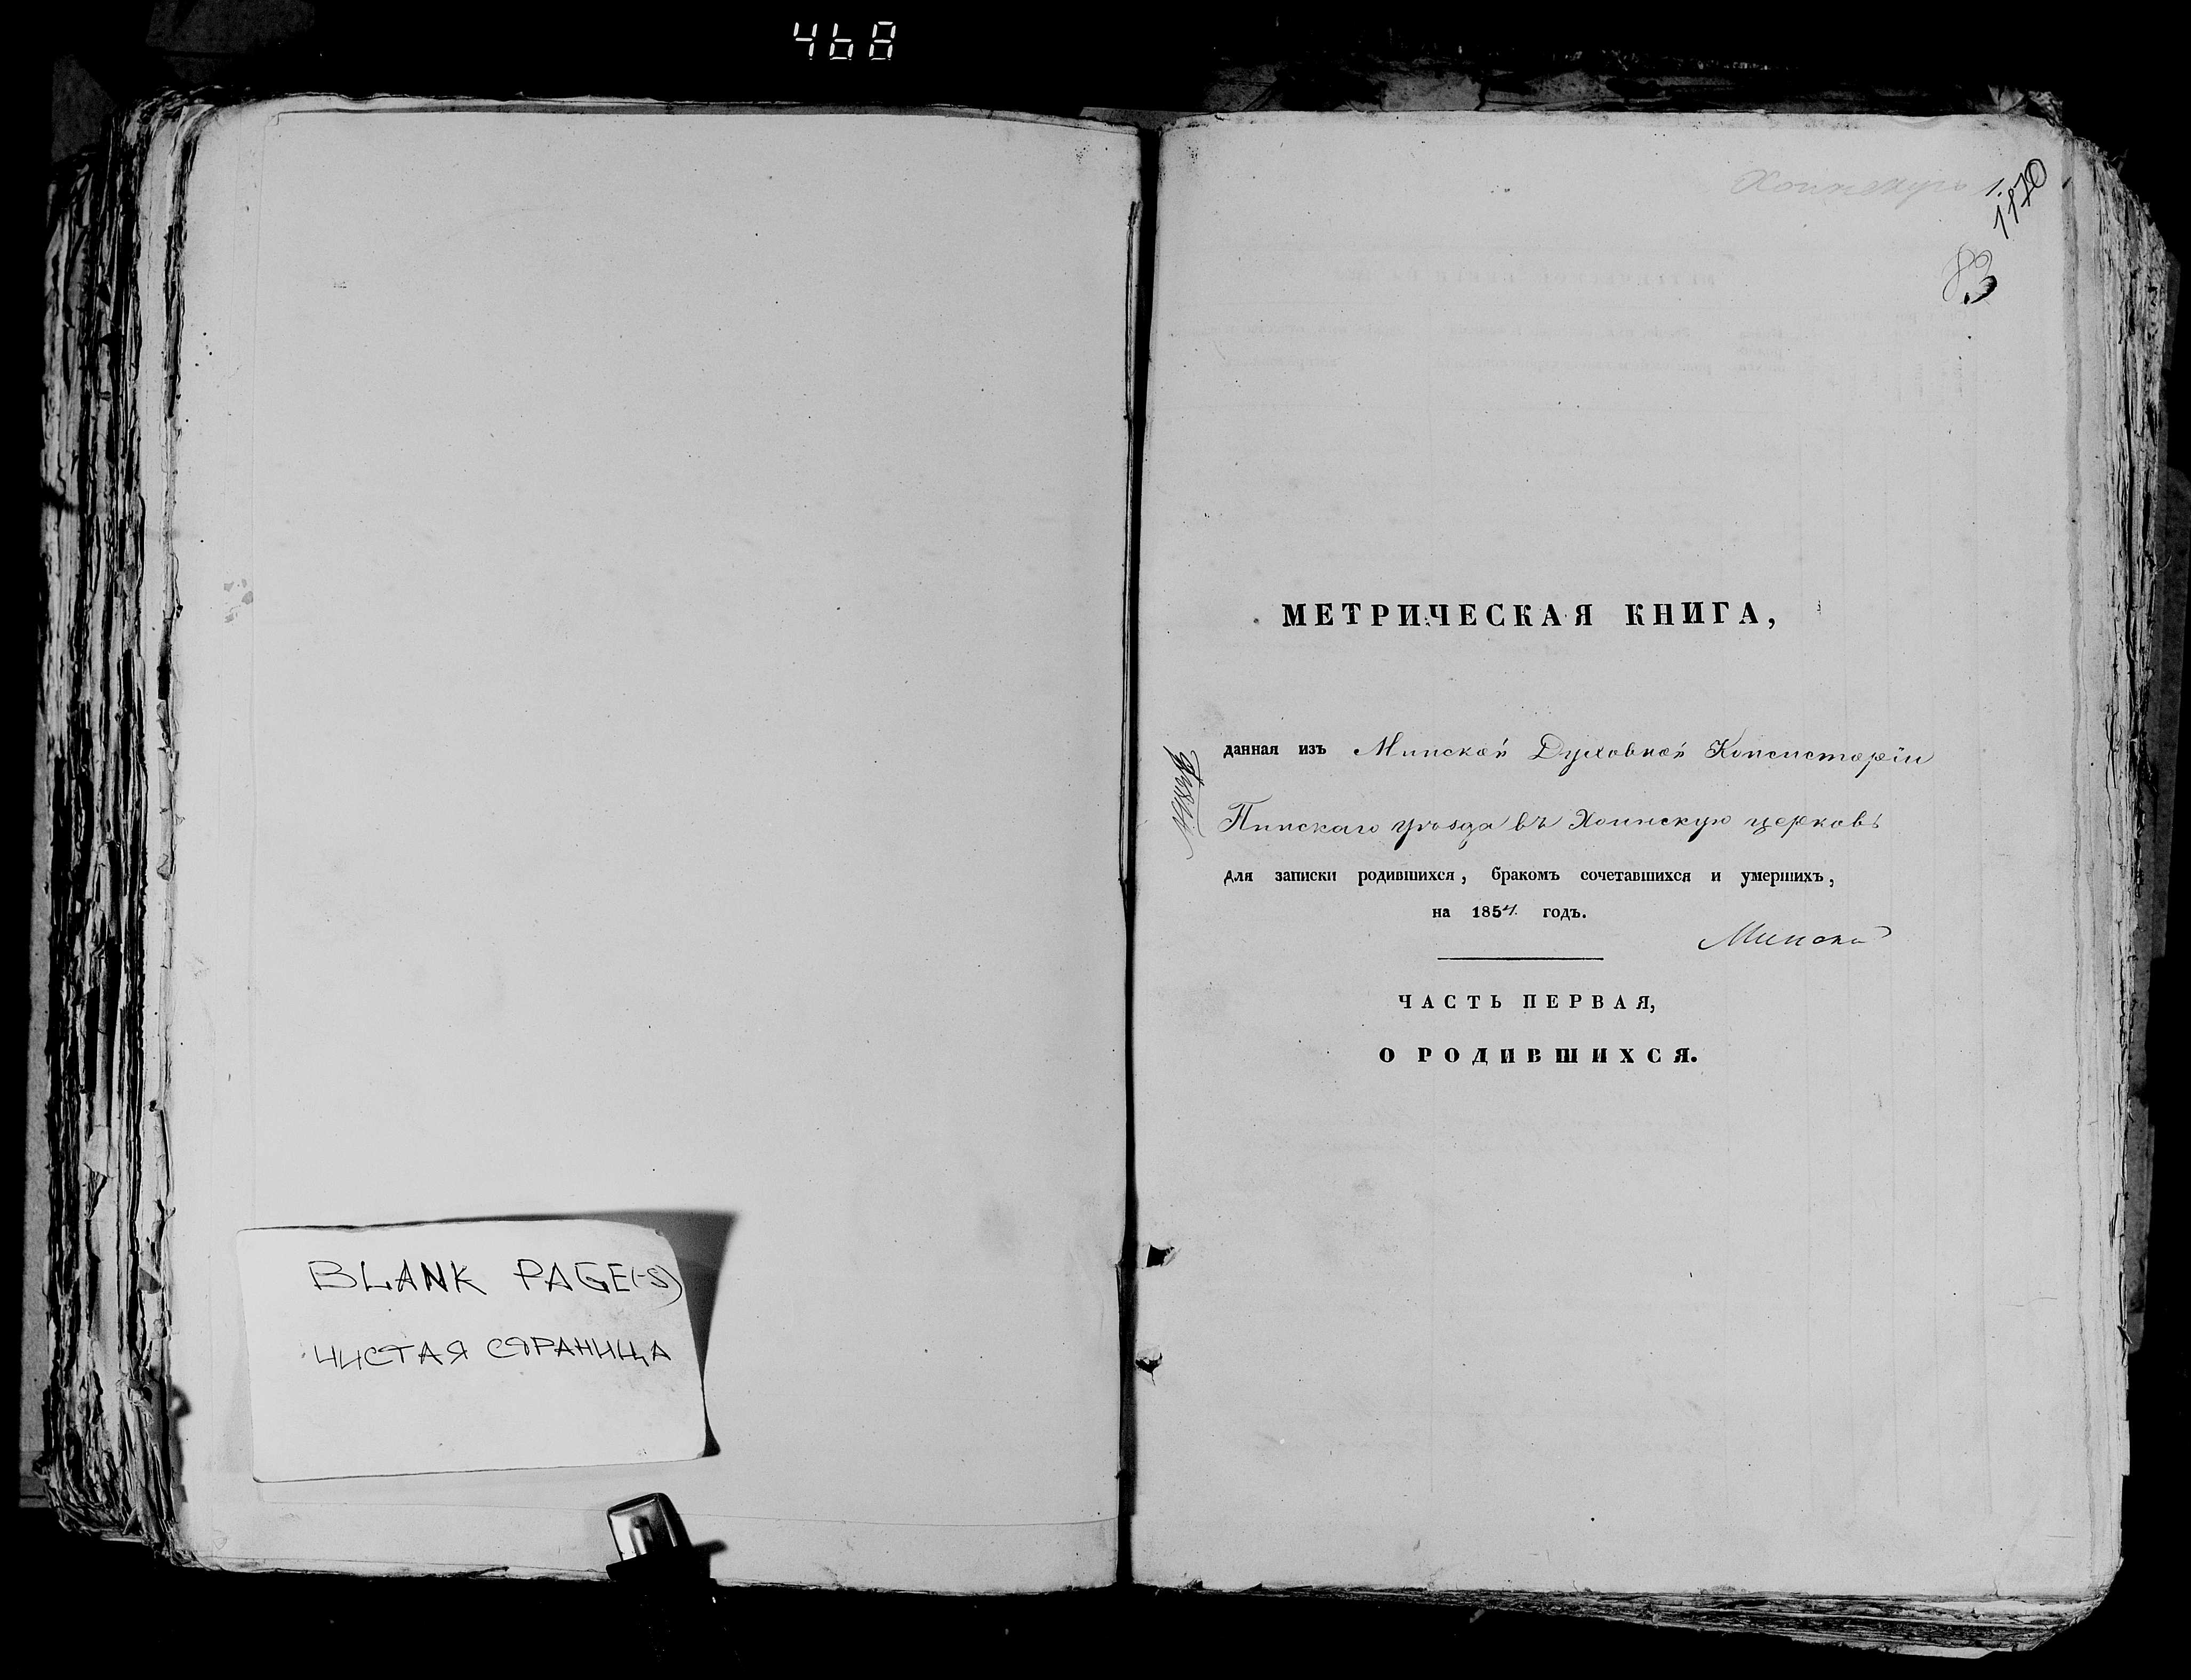 468
BLANK PAGE(-S)
ЧИСТАЯ СТРАНИЦА
Хоинскую
1170
83
МЕТРИЧЕСКАЯ КНИГА,
данная изъ Минской Духовной Консисторіи
Пинскаго уѣзда въ Хоинскую церковь
для записки родившихся, бракомъ сочетавшихся и умершихъ,
на 1854 годъ.
ЧАСТЬ ПЕРВАЯ,
О РОДИВШИХСЯ.